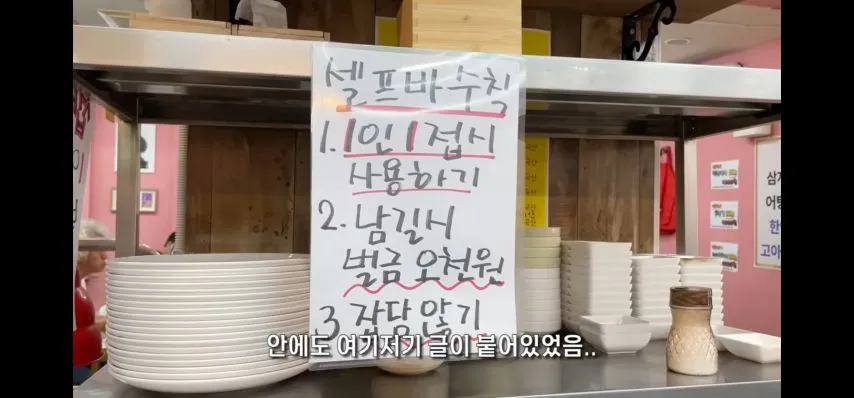 셀프바 수칙
1. 1인 1접시
사용하기
2. 남길시
벌금 오천원
3 잡담 않기
안에도 여기저기 글이 붙어있었음..
삼겹
어탕
한
고아